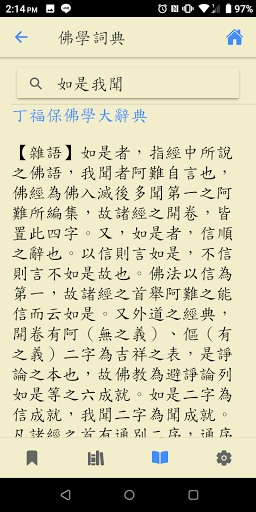 2:14 PM
97%
佛學詞典
如是我聞
丁福保佛學大辭典
【雜語】如是者，指經中所說
之佛語，我聞者阿難自言也，
佛經為佛入滅後多聞第一之阿
難所編集，故諸經之開卷，皆
置此四字。又，如是者，信順
之辭也。以信則言如是，不信
則言不如是故也。佛法以信為
第一，故諸經之首舉阿難之能
信而云如是。又外道之經典，
開卷有阿（無之義）、傴（有
之義）二字為吉祥之表，是諍
論之本也，故佛教為避諍論列
如是等之六成就。如是二字為
信成就，我聞二字為聞成就。
凡諸經之首有通別二序，通序